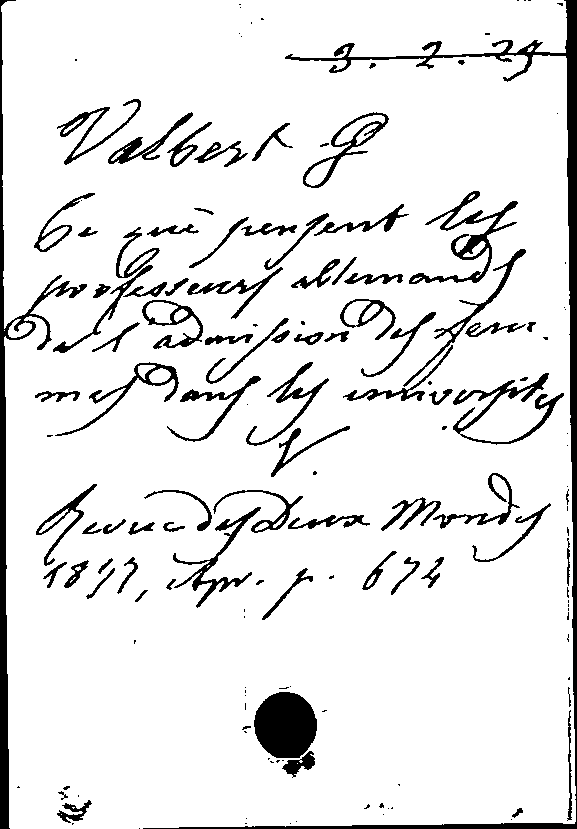 3. 2. 29
Valbert G
Ce que pensent les
professeurs allemands
de l'admission des fem-
mes dans les universités
V.
Revue des Deux Mondes
1897, Apr. p. 674